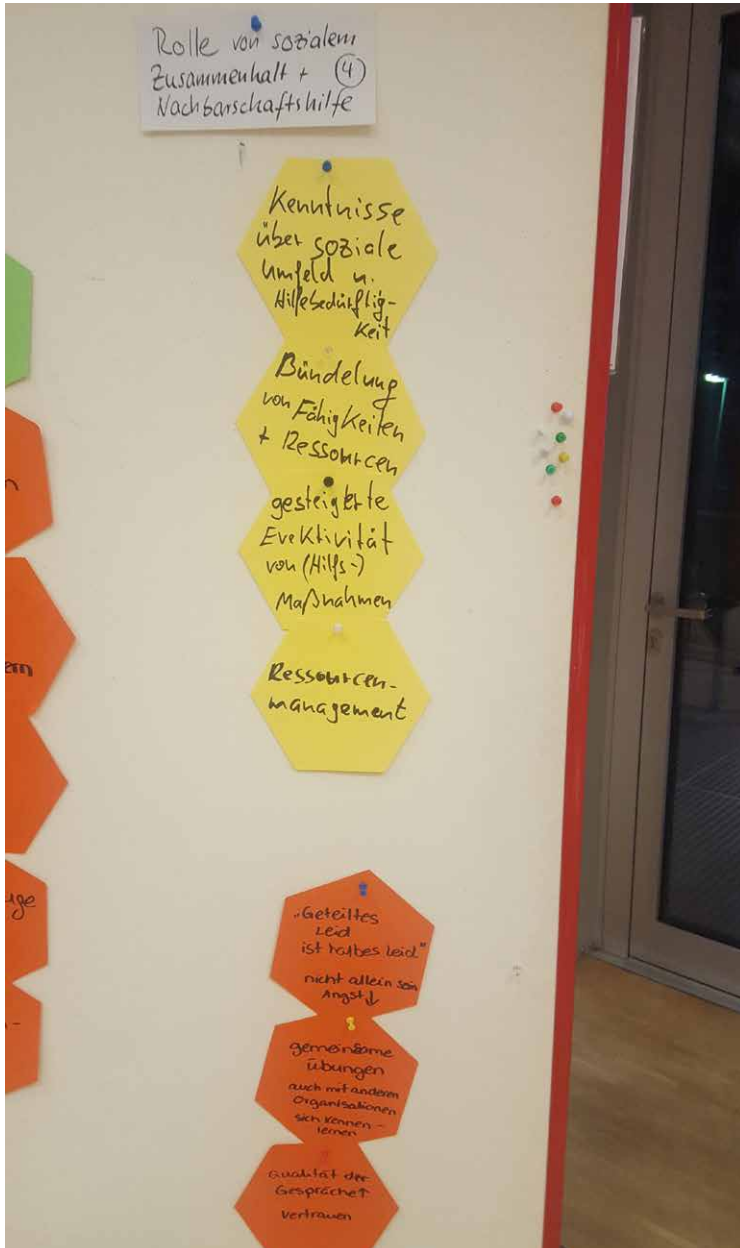 Rolle von sozialem
Zusammenhalt + 4
Nachbarschaftshilfe
Kenntnisse
über soziale
Umfeld u.
Hilfebedürftig-
keit
Bündelung
von Fähigkeiten
+ Ressourcen
gesteigerte
Evektivität
von (Hilfs-)
Maßnahmen
Ressourcen-
management
„Geteiltes
Leid
ist halbes Leid"
nicht allein sein
Angst↓
gemeinsame
Übungen
auch mit anderen
Organisationen
sich kennen-
lernen
Qualität der
Gespräche↑
vertrauen